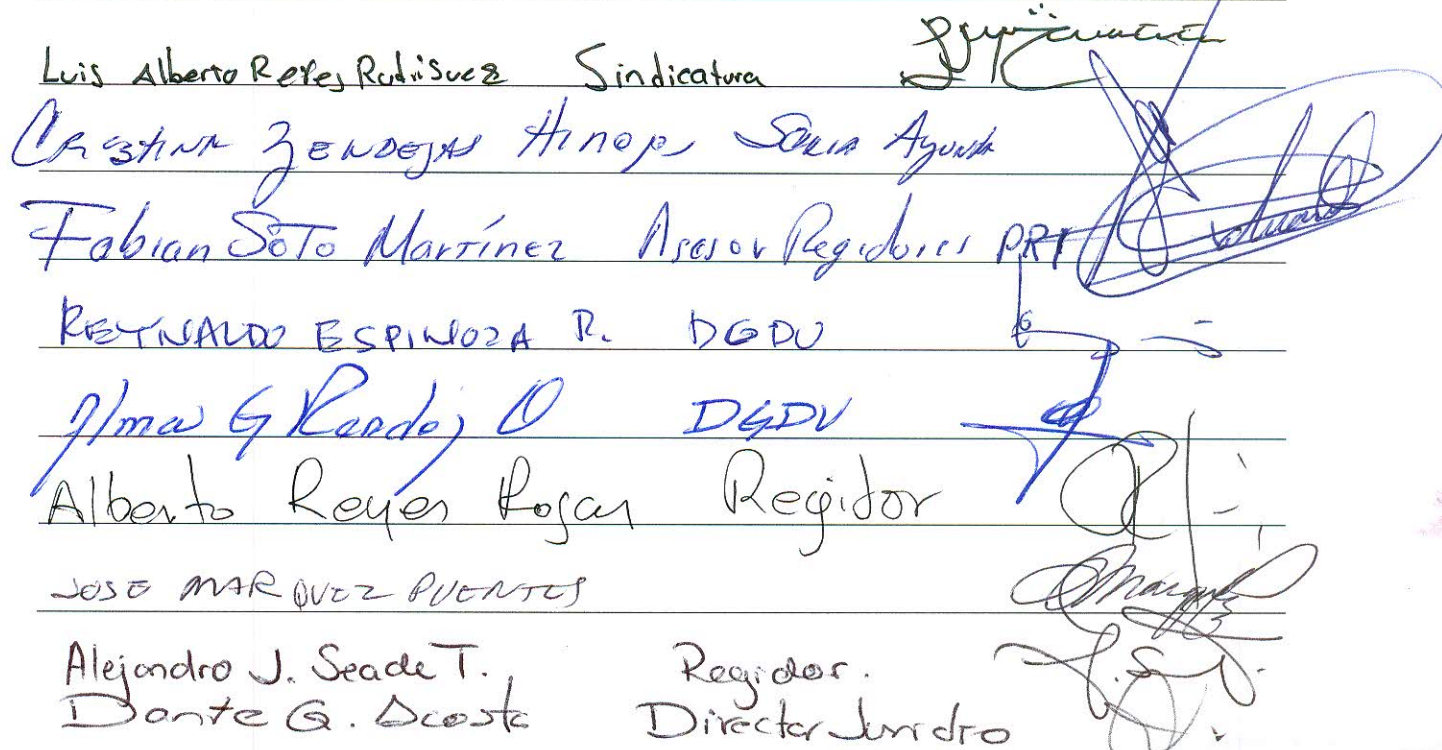 Luis Alberto Reyes Rodriguez Sindicatura
Cristina Zendejas Hinoj Sria Ayunta
Fabian Soto Martínez Asesor Regidores PRI
REYNALDO ESPINOZA R. DGDU
Alma G O DGDU
Alberto Reyes Rojas Regidor
JOSE MARQUEZ PUENTES
Alejandro J. Seade T. Regidor.
Dante G. Acosta Director Juridico